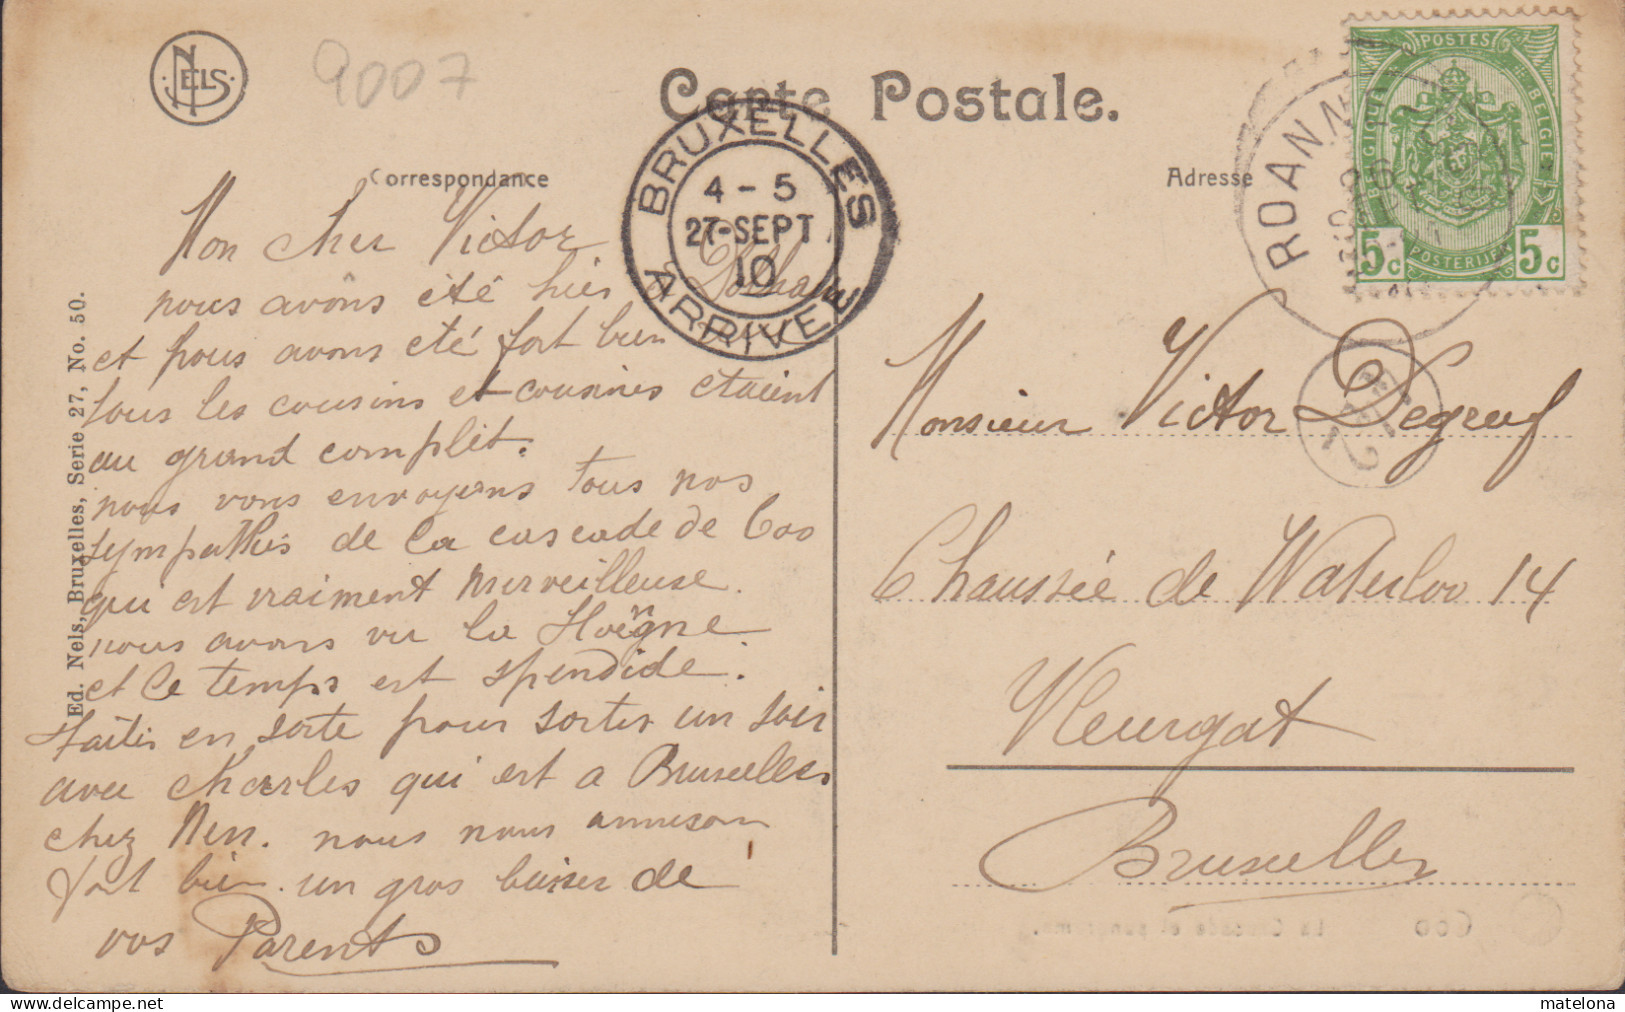 NELS
9007
Carte Postale.
Correspondance
Adresse
BRUXELLES
4 - 5
27-SEPT
10
ARRIVEE
ROANNE
POSTES
BELGIQUE
BELGIE
POSTERIJEN
5c 5c
Mon cher Victor
nous avons été hier a
et nous avons été fort bien
tous les cousins et cousines etaient
au grand complet.
nous vous envoyons tous nos
sympathies de la cascade de Coo
qui est vraiment merveilleuse.
nous avons vu la Hoëgne
et le temps est spendide.
Faites en sorte pour sortir un soir
avec Charles qui est a Bruxelles
chez nous nous amuson
fort bien. un gros baiser de
vos Parents
Ed. Nels, Bruxelles, Serie 27, No. 50.
Monsieur Victor Degreef
Chaussée de Waterloo 14
Vleurgat
Bruxelles
Coo La Cascade et panorama.
matelona